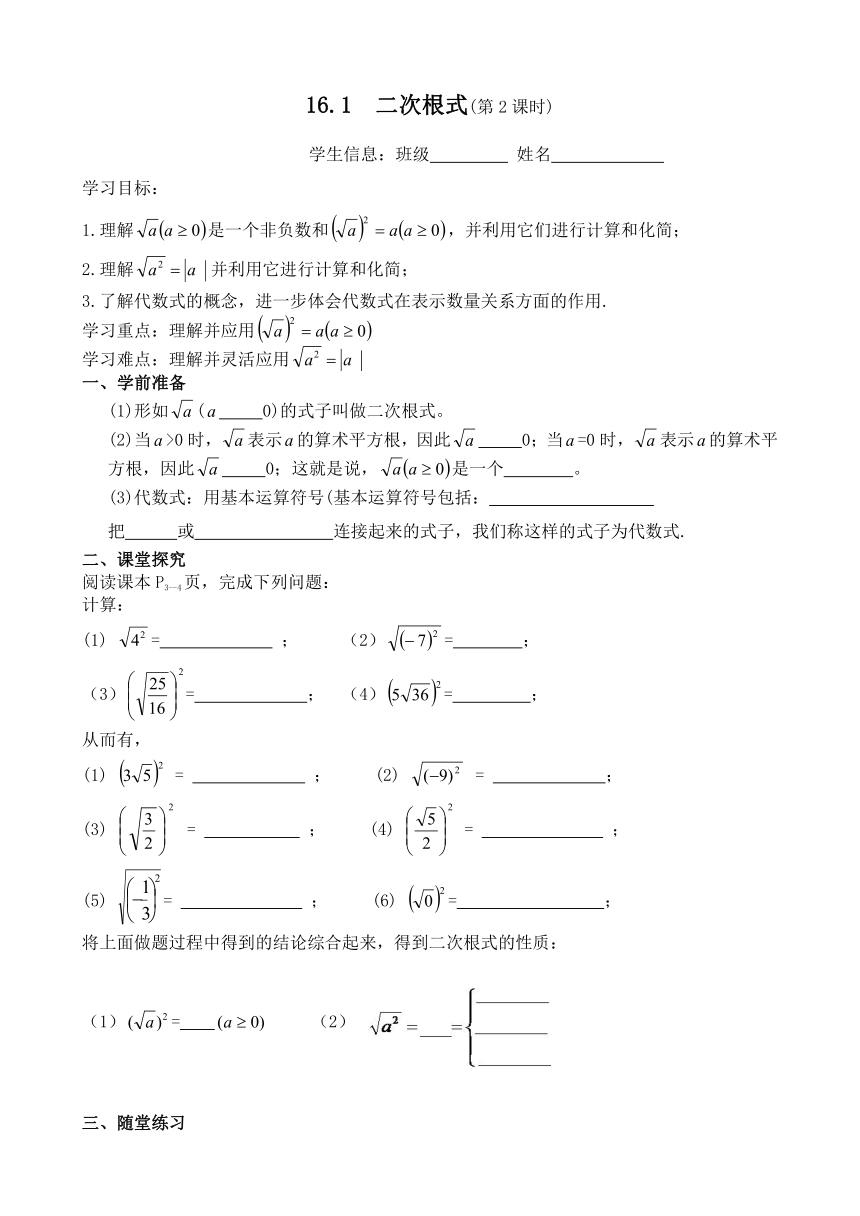 16.1  二次根式(第2课时)
学生信息:班级________ 姓名___________
学习目标:
1.理解√a(a≥0)是一个非负数和(√a)²=a(a≥0),并利用它们进行计算和化简;
2.理解√a²=|a|并利用它进行计算和化简;
3.了解代数式的概念,进一步体会代数式在表示数量关系方面的作用.
学习重点:理解并应用(√a)²=a(a≥0)
学习难点:理解并灵活应用√a²=|a|
一、学前准备
(1)形如√a(a_____0)的式子叫做二次根式。
(2)当a>0时,√a表示a的算术平方根,因此√a_____0;当a=0时,√a表示a的算术平
方根,因此√a_____0;这就是说,√a(a≥0)是一个________。
(3)代数式:用基本运算符号(基本运算符号包括:___________________
把______或________________连接起来的式子,我们称这样的式子为代数式.
二、课堂探究
阅读课本P₃₋₄页,完成下列问题:
计算:
(1) √4²=_____________ ; (2)√(-7)²=________;
(3)(√(25/16))²=_____________; (4)(5√36)²=_________;
从而有,
(1) (3√5)² = _____________ ; (2) √(-9)² = _____________;
(3) (√(3/2))² = ___________ ; (4) (√5/2)² = ______________ ;
(5) √(-1/3)²= ______________ ; (6) (√0)²=_________________;
将上面做题过程中得到的结论综合起来,得到二次根式的性质:
(1)(√a)²=____(a≥0) (2) √a²=____={_________ _________ _________
三、随堂练习